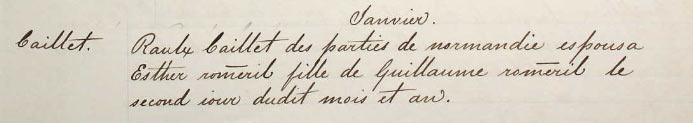 Janvier.
Caillet. Raulx Caillet des parties de normandie espousa
Esther rom̄eril fille de Guillaume rom̄eril le
second iour dudit mois et an.